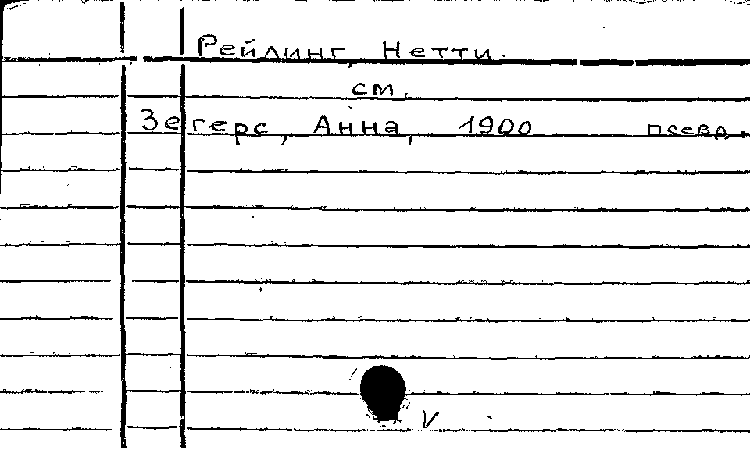 Рейлинг, Нетти.
см.
Зегерс, Анна, 1900 псевд.
V